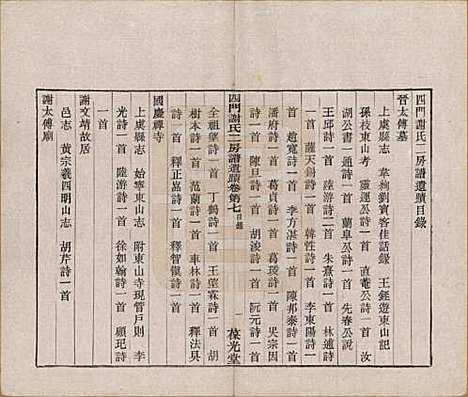 四門謝氏二房譜遺蹟目錄
晉太傅墓
上虞縣志 韋絢劉賓客佳話錄 王銍遊東山記
孫枝東山考 靈運公詩一首 直菴公詩一首 汝
湖公書一通詩一首 蘭皐公詩一首 先春公說
王邱詩一首 陸游詩二首 朱熹詩一首 林通詩
一首 薩天錫詩一首 韓性詩一首 李東陽一首
趙寬詩一首 李方湛詩一首 陳邦泰詩一首
潘府詩一首 葛貞詩一首 葛瑗詩一首 吳宗因
詩一首 陳旦詩一首 胡浚詩一首 阮元詩一首
四門謝氏二房譜遺蹟卷第七 目錄 一 葆光堂
全祖望詩一首 丁鶴詩一首 王望霖詩一首 胡
樹本詩一首 范蘭詩一首 車林詩一首 釋法吳
詩一首 釋正嵓詩一首 釋智儼詩一首
國慶禪寺
上虞縣志 始寧東山志 附東山寺現管戶則 李
光詩一首 陸游詩一首 徐如翰詩一首 顧玘詩
一首
謝文靖故居
邑志 黃宗羲四明山志 胡芹詩一首
謝太傅廟